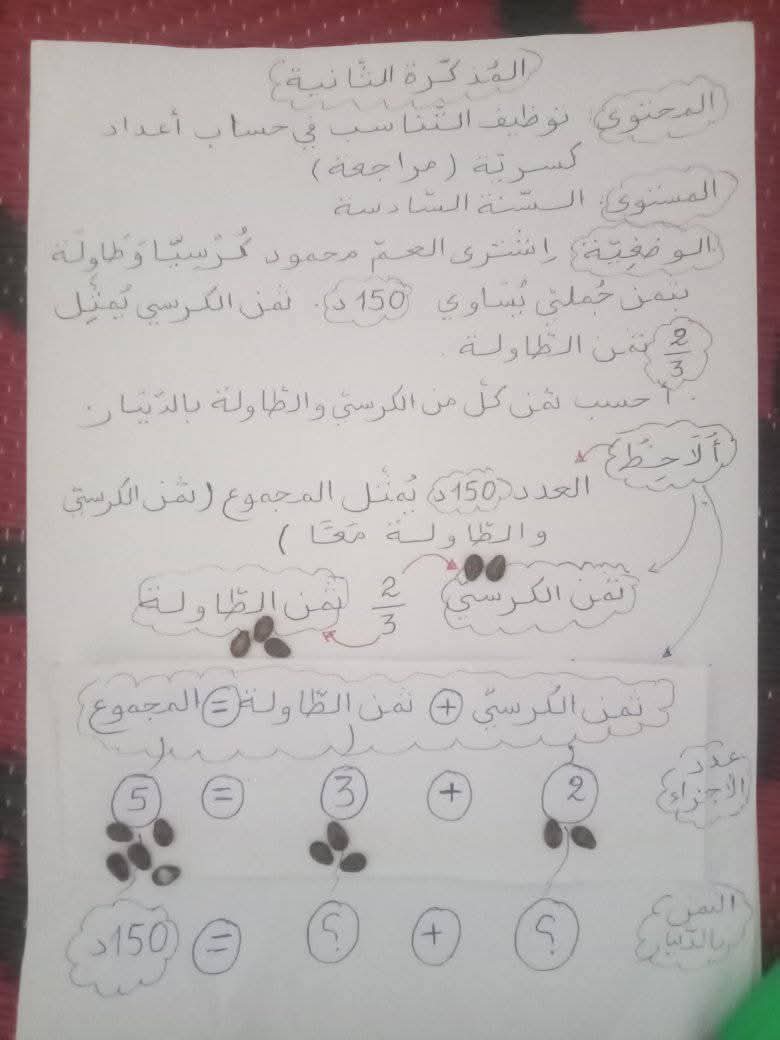 المُذكّرة الثّانية
المحتوى: توظيف التّناسب في حساب أعداد
كسريّة (مراجعة)
المستوى: السّنة السّادسة
الوضعيّة: اِشترى العمّ محمود كُرسيّا وَطاولة
بثمن جُمليّ يُساوي 150 د. ثمن الكرسي يُمثّل
2/3 ثمن الطّاولة.
أحسب ثمن كلّ من الكرسيّ والطّاولة بالدّينار.
أُلَاحِظُ
العدد 150د يُمثّل المجموع (ثمن الكرسيّ
والطّاولة مَعًا)
ثمن الكرسيّ 2/3 ثمن الطّاولة
ثمن الكرسيّ + ثمن الطّاولة = المجموع
عدد
الأجزاء
2 + 3 = 5
الثمن
بالدّينار
؟ + ؟ = 150د